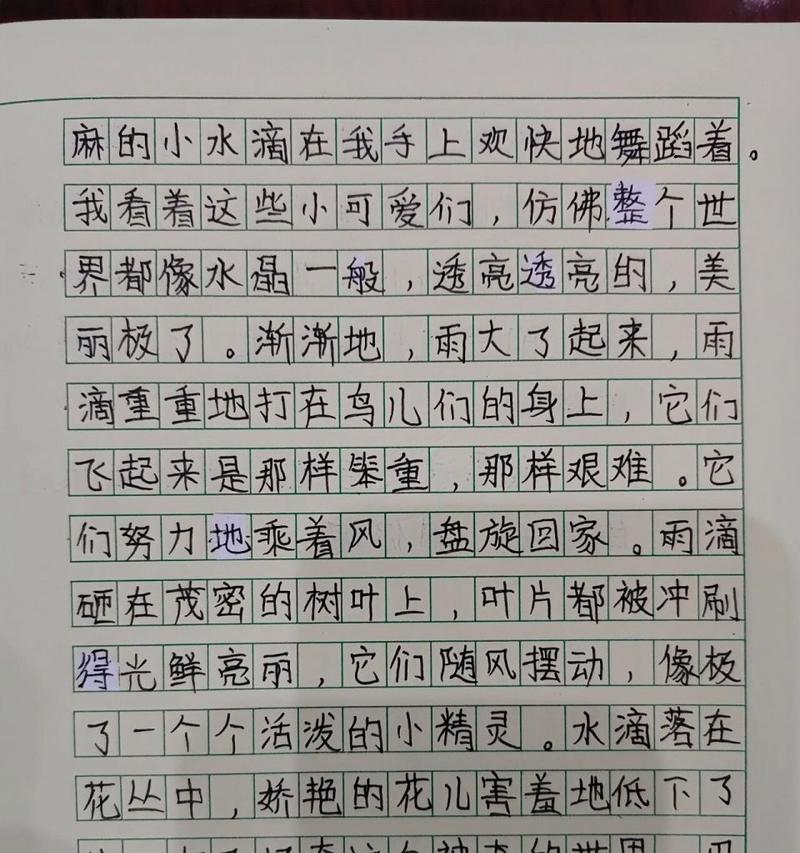 麻的小水滴在我手上欢快地舞蹈着。
我看着这些小可爱们，仿佛整个世
界都像水晶一般，透亮透亮的，美
丽极了。渐渐地，雨大了起来，雨
滴重重地打在鸟儿们的身上，它们
飞起来是那样笨重，那样艰难。它
们努力地乘着风，盘旋回家。雨滴
砸在茂密的树叶上，叶片都被冲刷
得光鲜亮丽，它们随风摆动，像极
了一个个活泼的小精灵。水滴落在
花丛中，娇艳的花儿害羞地低下了